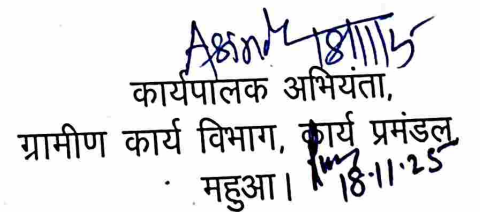 18/11/25
कार्यपालक अभियंता,
ग्रामीण कार्य विभाग, कार्य प्रमंडल,
महुआ।
18.11.25